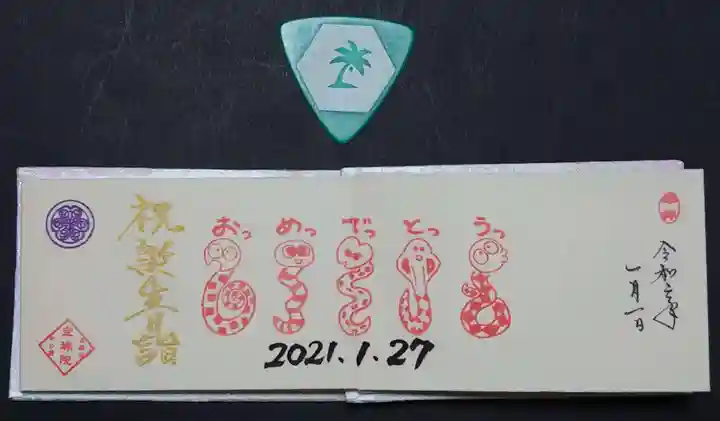 祝誕生日詣
おっ めっ でっ とっ うっ
2021.1.27
令和
一月一日
宝珠院